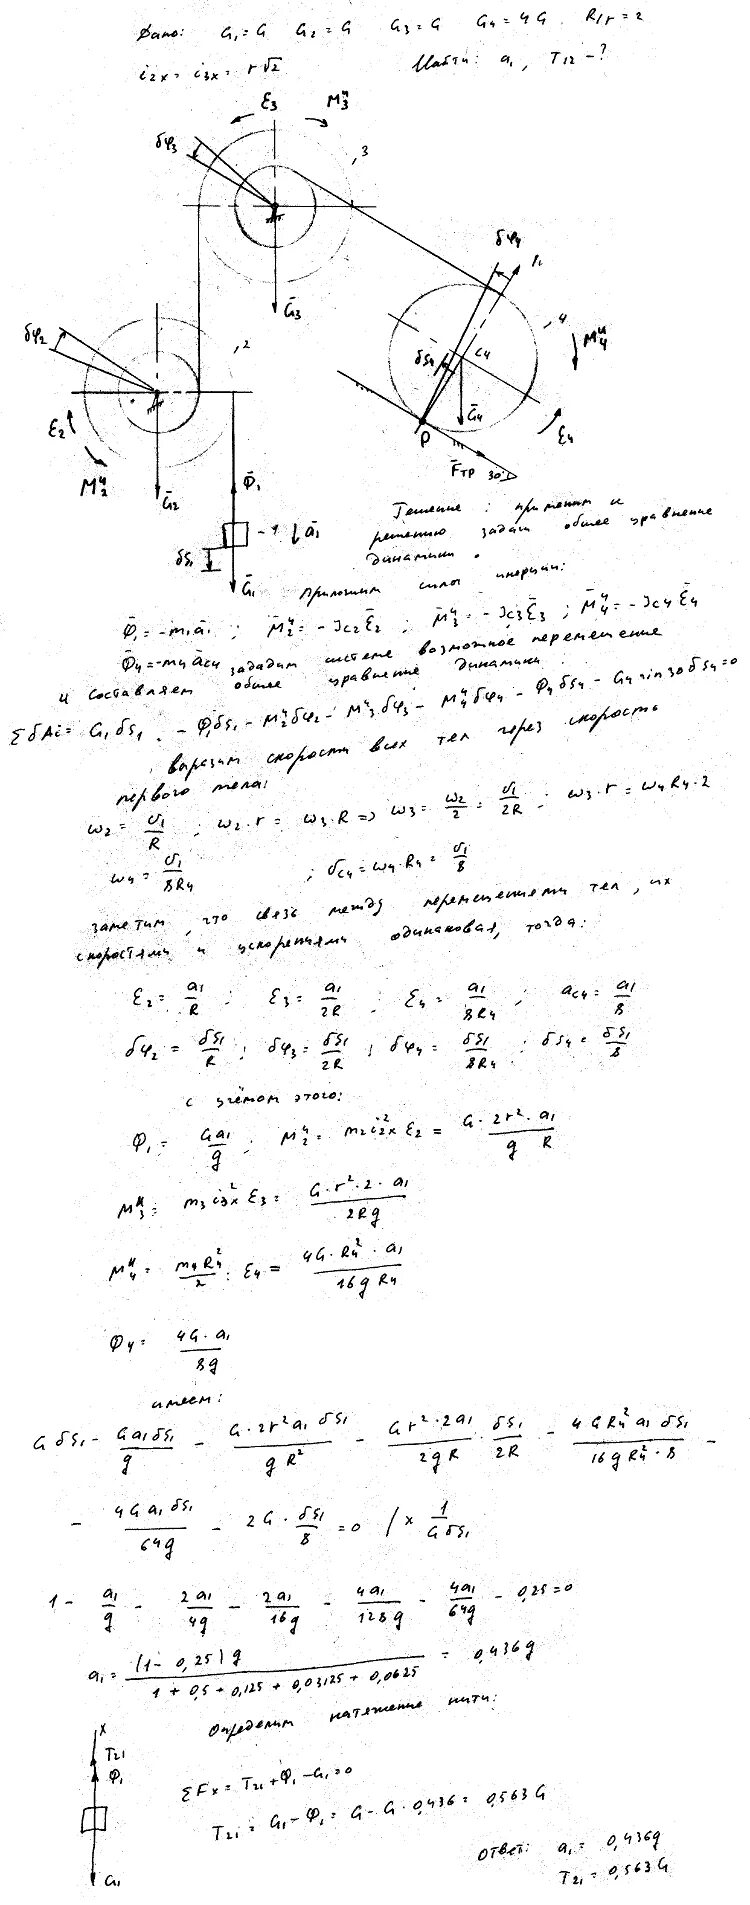 Дано: G₁=G G₂=G G₃=G G₄=4G R/r=2
i₂ₓ=i₃ₓ=r√2 Найти: a₁, T₁₂-?
ε₃ M₃ᴴ
δφ₃
3
δφ₄
G̅₃
4
M₄ᴴ
δφ₂
2
δS₄ C₄
G̅₄
ε₄
P
F̅тр 30°
ε₂
M₂ᴴ
G̅₂
Φ̅₁
1 a̅₁
δS₁
G̅₁
Решение: применим к
решению задачи общее уравнение
динамики.
Приложим силы инерции:
Φ̅₁=-m₁a̅₁; M̅₂ᴴ=-Jc₂ε̅₂; M̅₃ᴴ=-Jc₃ε̅₃; M̅₄ᴴ=-Jc₄ε̅₄
Φ̅₄=-m₄a̅c₄ зададим системе возможное перемещение
и составляем общее уравнение динамики:
ΣδAi= G₁δS₁ - Φ₁δS₁ - M₂ᴴδφ₂ - M₃ᴴδφ₃ - M₄ᴴδφ₄ - Φ₄δS₄ - G₄sin30δS₄=0
выразим скорости всех тел через скорость
первого тела:
ω₂= υ₁/R; ω₂·r= ω₃·R => ω₃= ω₂/2 = υ₁/2R; ω₃·r=ω₄R₄·2
ω₄= υ₁/8R₄; υc₄=ω₄·R₄= υ₁/8
заметим, что связь между перемещениями тел, их
скоростями и ускорениями одинаковая, тогда:
ε₂= a₁/R; ε₃= a₁/2R; ε₄= a₁/8R₄; ac₄= a₁/8
δφ₂= δS₁/R; δφ₃= δS₁/2R; δφ₄= δS₁/8R₄; δS₄= δS₁/8
с учётом этого:
Φ₁= Ga₁/g; M₂ᴴ= m₂i²₂ₓε₂= G·2r²·a₁/g R
M₃ᴴ= m₃i²₃ₓε₃= G·r²·2·a₁/2Rg
M₄ᴴ= m₄R₄²/2·ε₄= 4G·R₄²·a₁/16gR₄
Φ₄= 4G·a₁/8g
имеем:
GδS₁- Ga₁δS₁/g - G·2r²a₁δS₁/gR² - Gr²·2a₁/2gR · δS₁/2R - 4GR₄²a₁δS₁/16gR₄²·8 -
- 4Ga₁δS₁/64g - 2G·δS₁/8=0 /× 1/GδS₁
1- a₁/g - 2a₁/4g - 2a₁/16g - 4a₁/128g - 4a₁/64g - 0,25=0
a₁= (1-0,25)g/1+0,5+0,125+0,03125+0,0625 = 0,436g
Определим натяжение нити:
x
T₂₁
Φ₁
G₁
ΣFx=T₂₁+Φ₁-G₁=0
T₂₁=G₁-Φ₁=G-G·0,436=0,563G
Ответ: a₁= 0,436g
T₂₁=0,563G